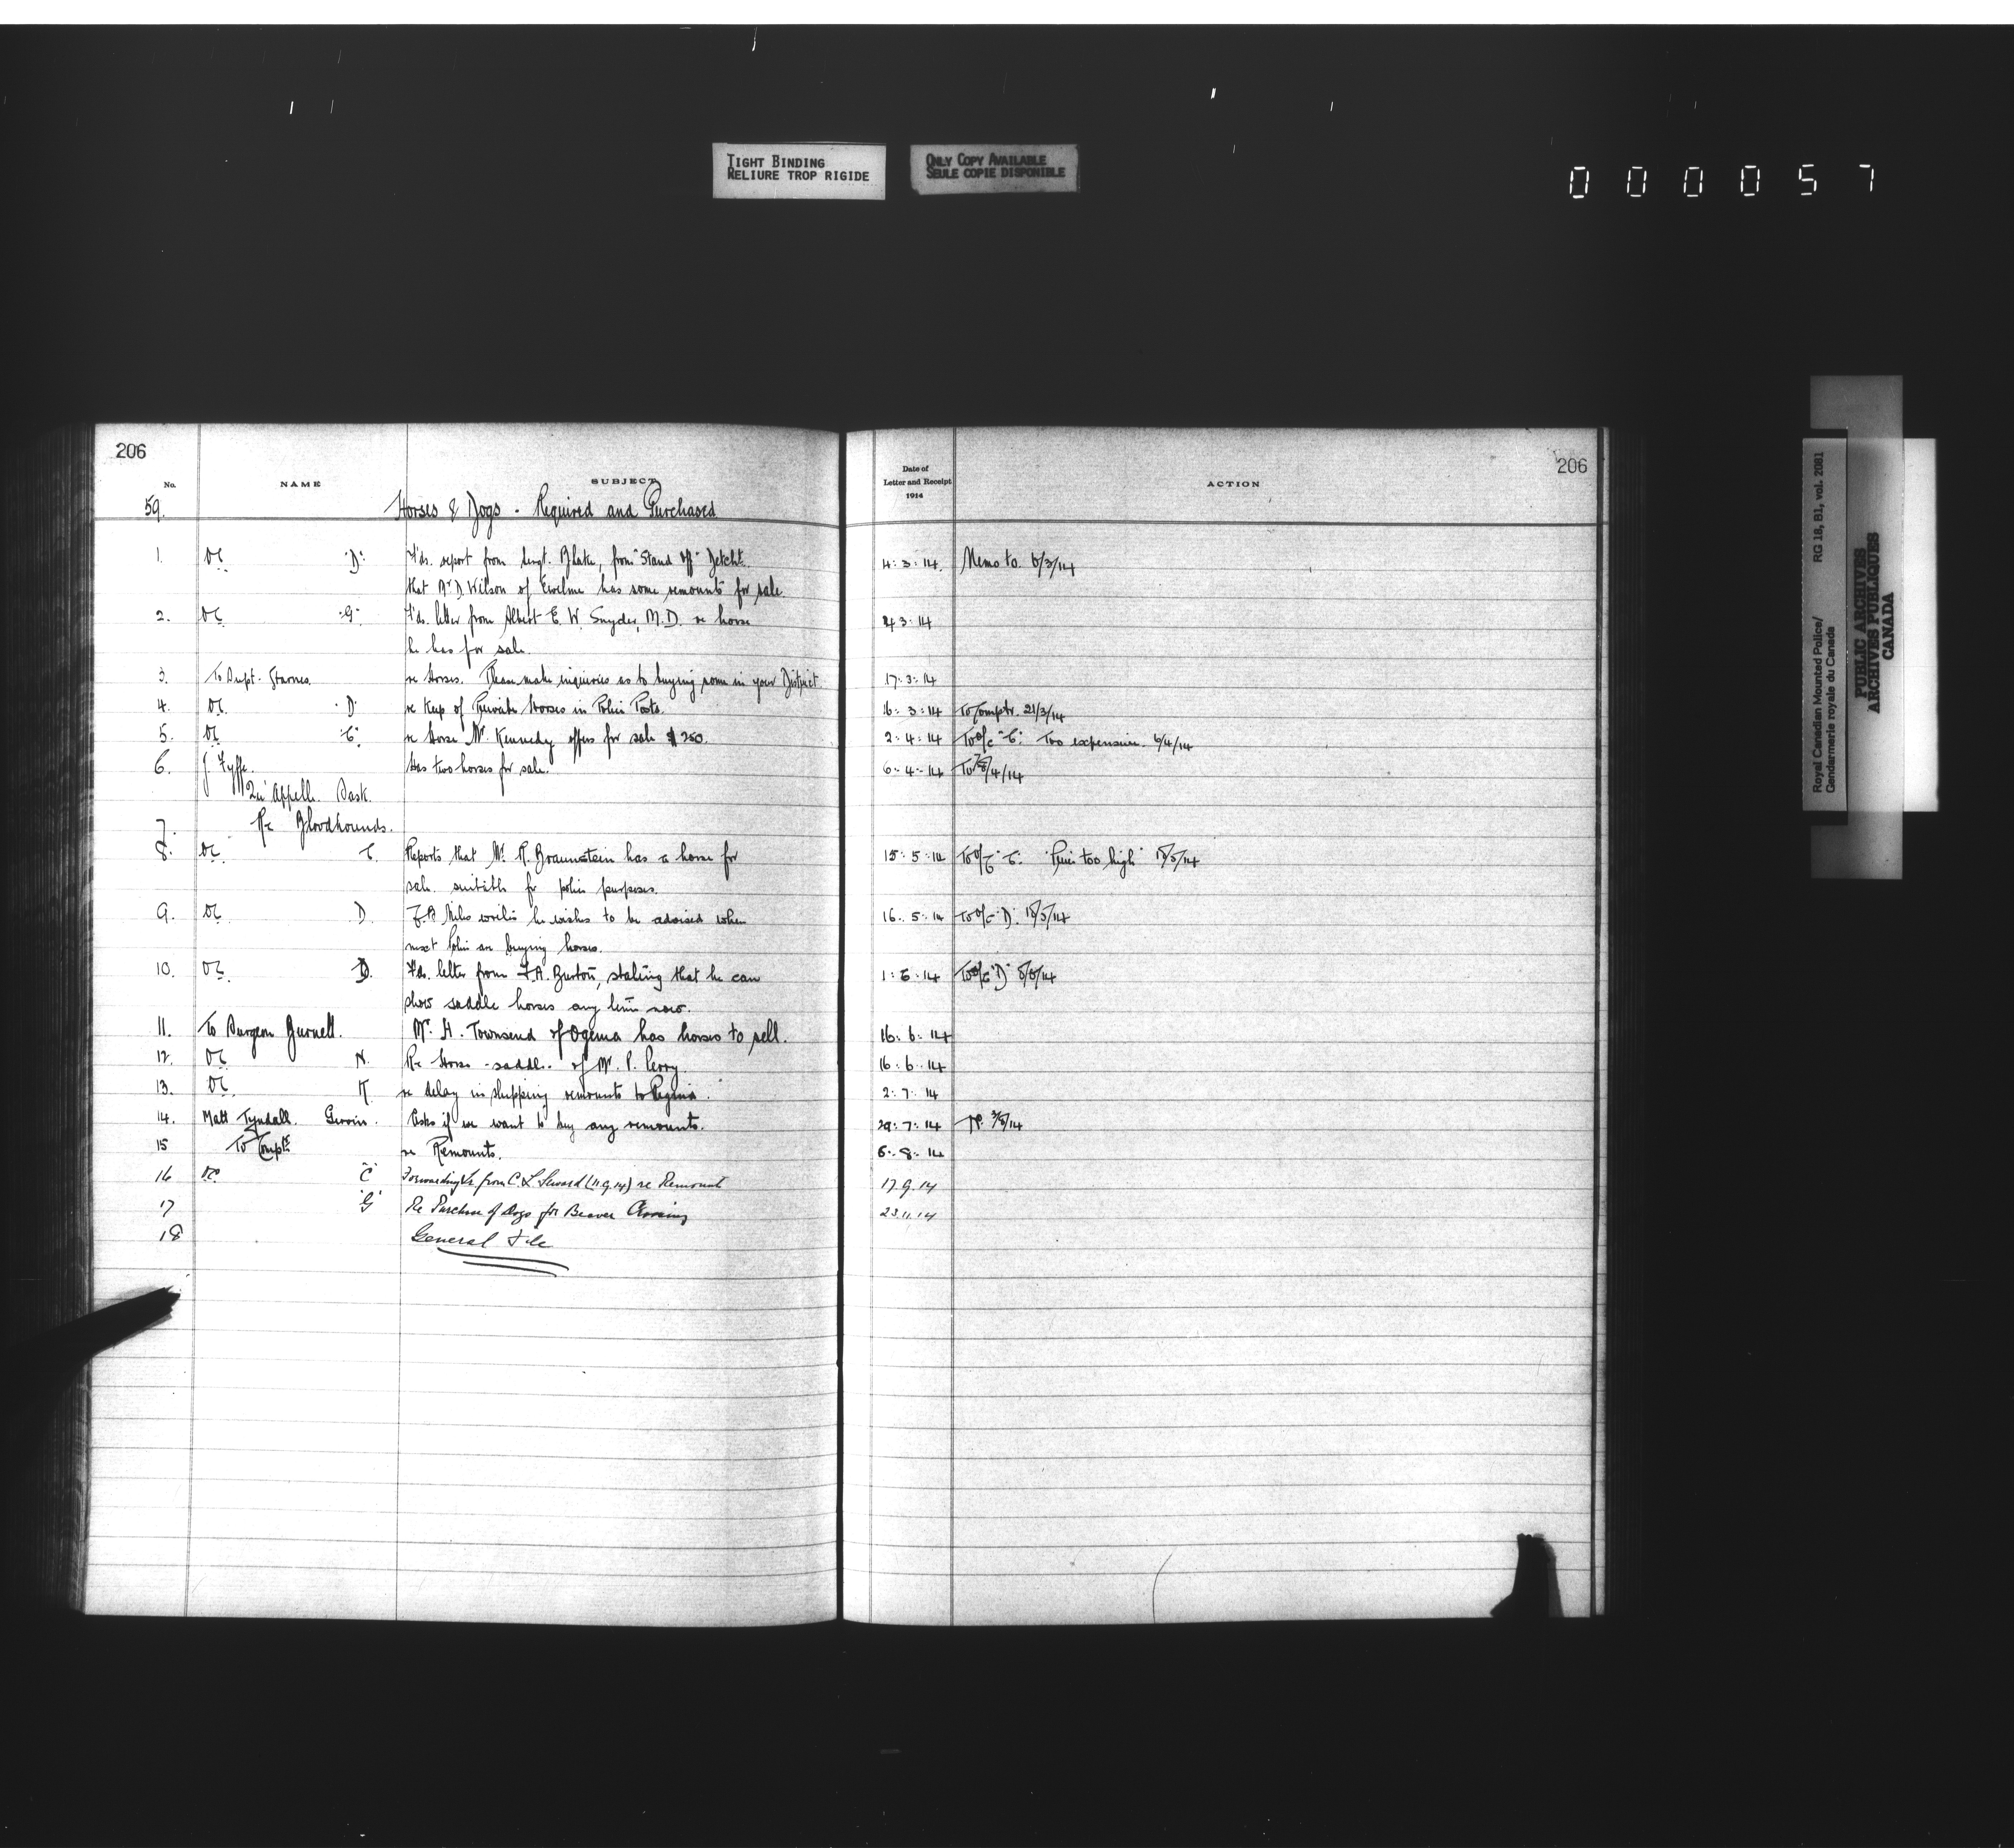 TIGHT BINDING
RELIURE TROP RIGIDE
ONLY COPY AVAILABLE
SEULE COPIE DISPONIBLE
000057
206
No. NAME SUBJECT
59. Horses & Dogs - Required and Purchased
1. OC. "D". F'ds. report from Sergt. Blake, from "Stand Off" Detcht.
that Mr. D. Wilson of Ewelme has some remounts for sale.
2. OC "G" F'ds. letter from Albert E. W. Snyder, M.D. re horse
he has for sale.
3. To Supt. Starnes. re Horses. Please make inquiries as to buying some in your District.
4. OC. "D" re Keep of Private Horses in Police Posts.
5. OC "C". re Horse Mr. Kennedy offers for sale $250.
6. J. Fyffe. Has two horses for sale.
Qu'Appelle. Sask.
7. Re Bloodhounds.
8. OC. C. Reports that Mr. R. Braunstein has a horse for
sale. suitable for police purposes.
9. OC. D. Miles writes he wishes to be advised when
next Police are buying horses.
10. OC. D. F'ds. letter from F.A. Burton, stating that he can
show saddle horses any time now.
11. To Surgeon Burnett. Mr. H. Townsend of Ogema has horses to sell.
12. OC N. Re Horse - saddle - of Mr. P. Perry.
13. OC. K re delay in shipping remounts to Regina.
14. Matt Tyndall. Girvin. Asks if we want to buy any remounts.
15 To Compt. re Remounts.
16 OC "C" Forwarding Lr. from C. L. Seward (11.9.14) re Remount
17 "G" Re Purchase of Dogs for Beaver Crossing
18 General File
206
Date of
Letter and Receipt
1914
ACTION
4:3:14. Memo to. 6/3/14
4 3:14
17:3:14
16:3:14 To Comptr. 21/3/14
2:4:14 To O/C "C". Too expensive. 6/4/14
6:4:14 To 7/4/14
15:5:14 To O/C "C". "Price too high" 18/5/14
16:5:14 To O/C "D". 18/5/14
1:6:14 To O/C "D"
16:6:14
16:6:14
2:7:14
29:7:14
5:8:14
17.9.14
23.11.14
Royal Canadian Mounted Police/
Gendarmerie royale du Canada
RG 18, B1, vol. 2081
PUBLIC ARCHIVES
ARCHIVES PUBLIQUES
CANADA